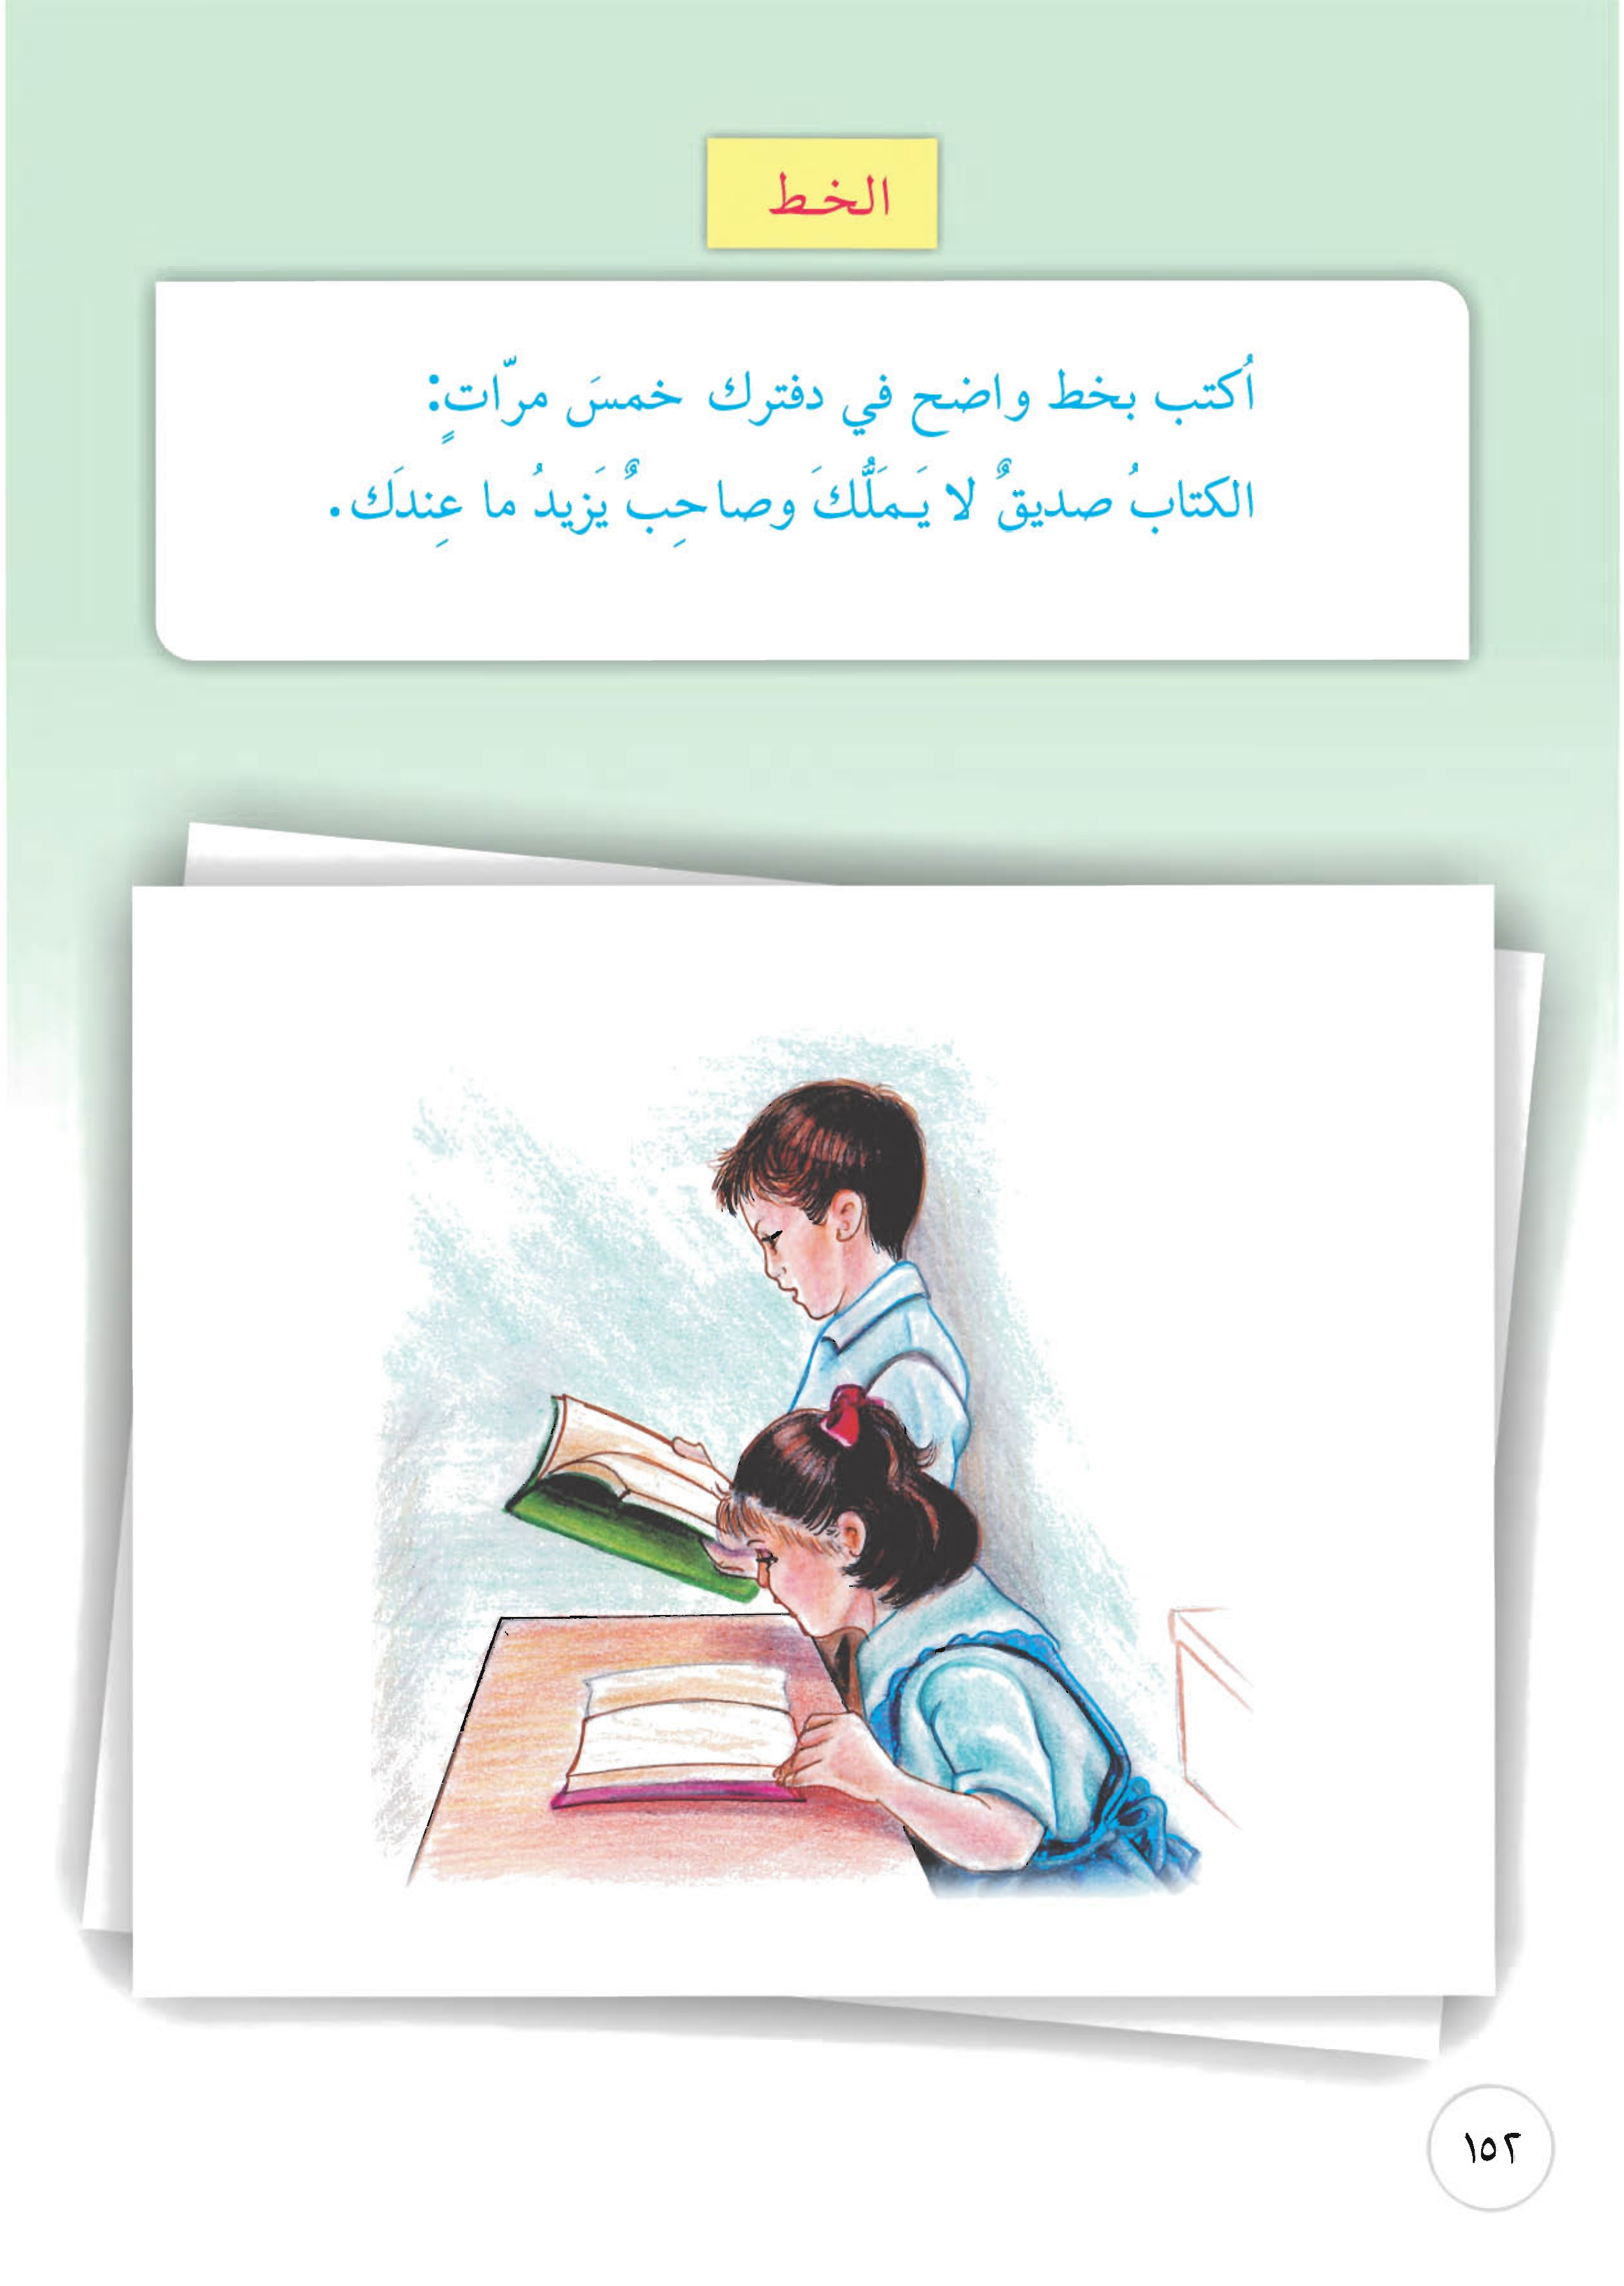 الخط
اُكتب بخط واضح في دفترك خمسَ مرّاتٍ:
الكتابُ صديقٌ لا يَـمَلُّكَ وصاحِبٌ يَزيدُ ما عِندَك.
١٥٢